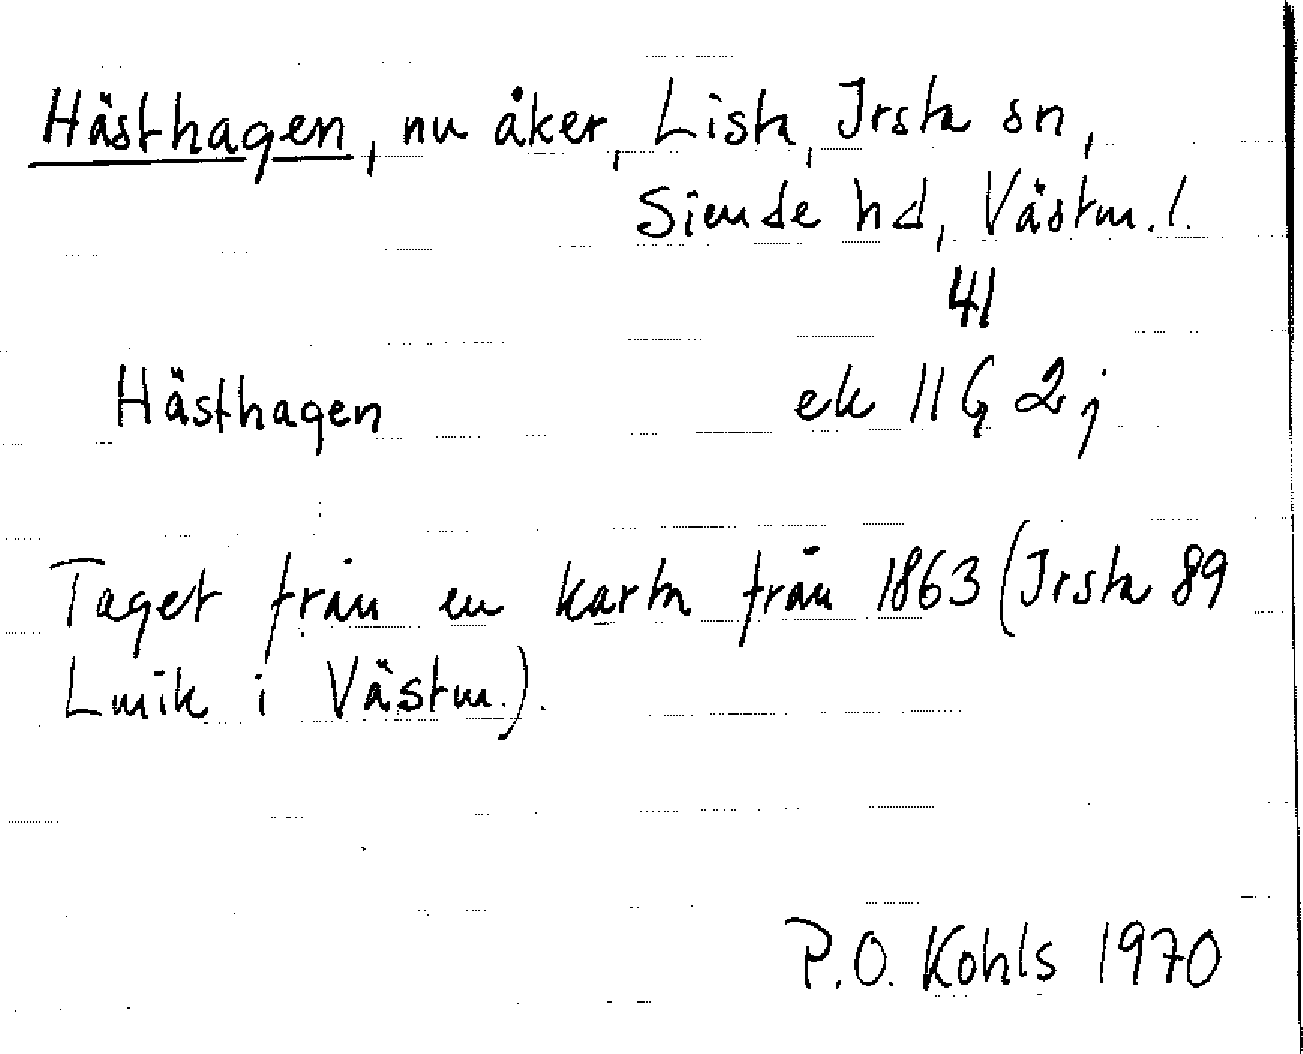 Hästhagen, nu åker, Lista, Irsta sn,
Siende hd, Västm. l.
41
Hästhagen ek 11 G 2 j
Taget från en karta från 1863 (Irsta 89
Lmik i Västm.).
P.O. Kohls 1970